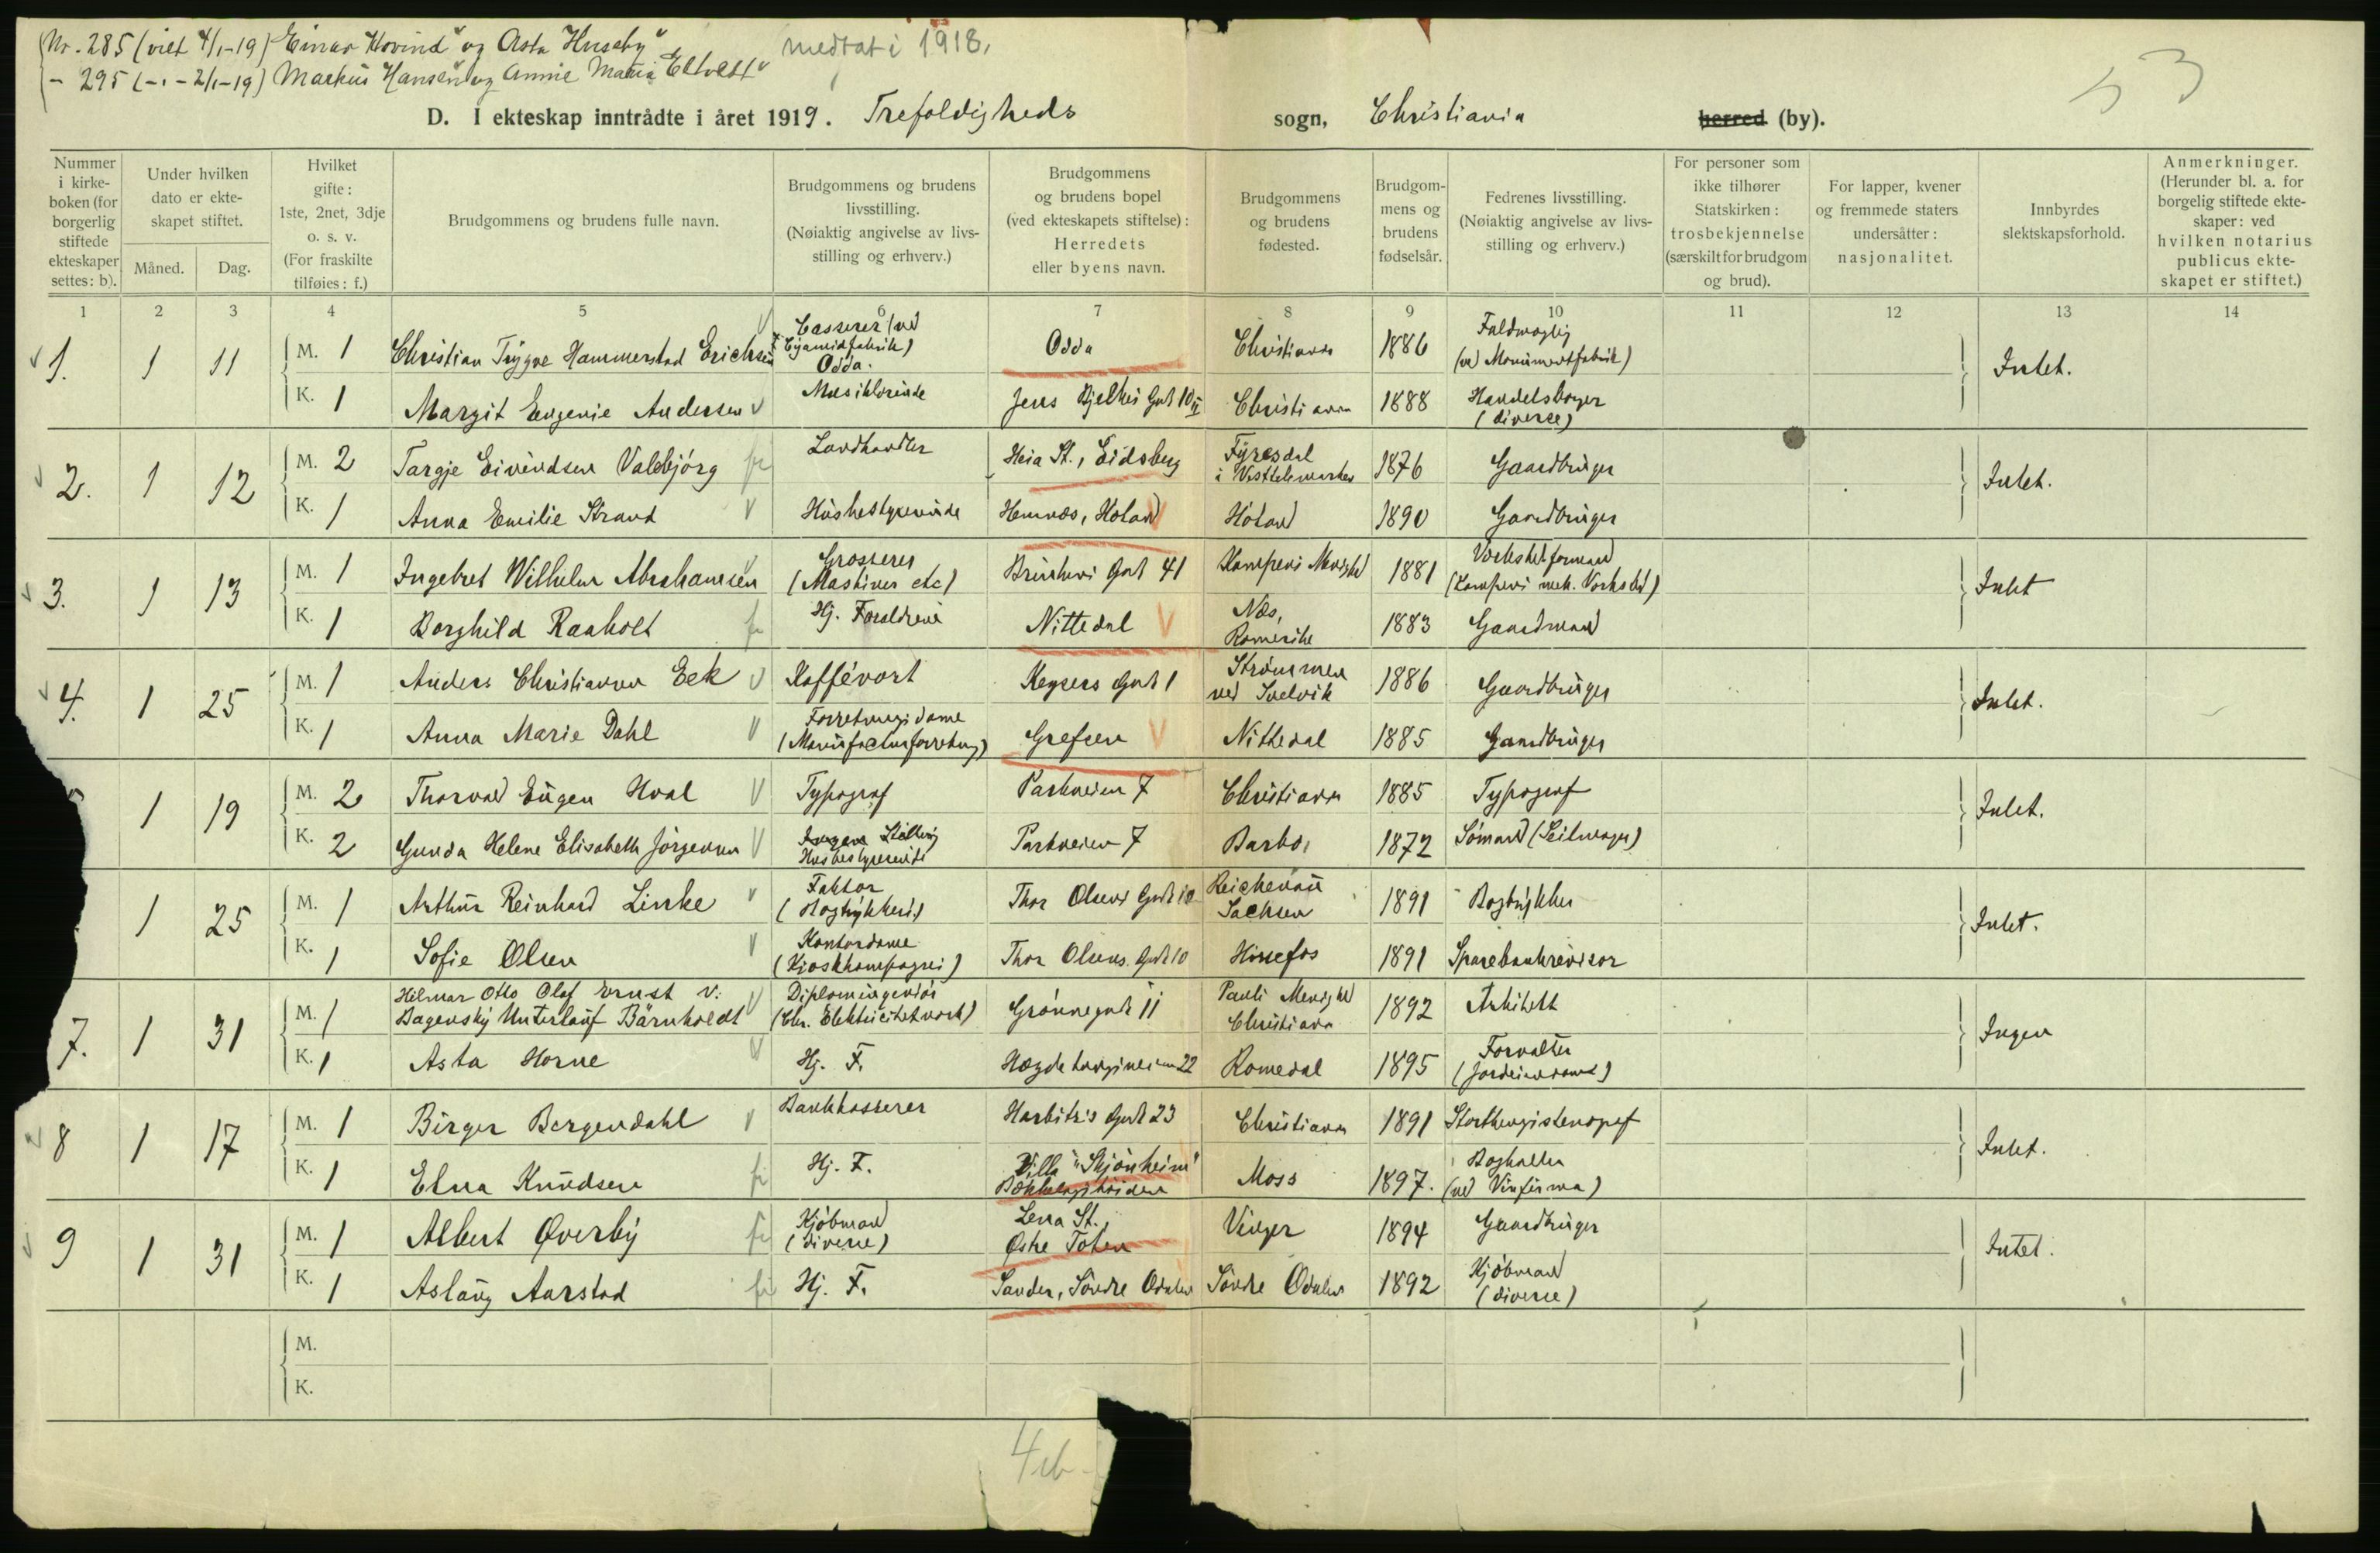 Nr. 285 (viet 4/1-19) Einar Hovind og Asta Huseby medtat i 1918.
- 295 (-"- 2/1-19) Markus Hansen og Annie Maria Eltvedt
53
D. I ekteskap inntrådte i året 1919. Trefoldigheds sogn, Christiania herred (by).
Nummer i kirke-boken (for borgerlig stiftede ekteskaper settes: b).
Under hvilken dato er ekte-skapet stiftet.
Måned. Dag.
Hvilket gifte: 1ste, 2net, 3dje o. s. v. (For fraskilte tilføies: f.)
Brudgommens og brudens fulle navn.
Brudgommens og brudens livsstilling. (Nøiaktig angivelse av livs-stilling og erhverv.)
Brudgommens og brudens bopel (ved ekteskapets stiftelse): Herredets eller byens navn.
Brudgommens og brudens fødested.
Brudgom-mens og brudens fødselsår.
Fedrenes livsstilling. (Nøiaktig angivelse av livs-stilling og erhverv.)
For personer som ikke tilhører Statskirken: trosbekjennelse (særskilt for brudgom og brud).
For lapper, kvener og fremmede staters undersåtter: nasjonalitet.
Innbyrdes slektskapsforhold.
Anmerkninger. (Herunder bl. a. for borgelig stiftede ekte-skaper: ved hvilken notarius publicus ekte-skapet er stiftet.)
1 2 3 4 5 6 7 8 9 10 11 12 13 14
1. 1 11 M. 1 Christian Trygve Hammerstad Erichsen Casserer (ved Cyamidfabrik) Odda. Odda Christiania 1886 (ved Monumentfabrik) Intet.
K. 1 Margit Eugenie Andersen Jens Bjelkes Gate 10 II Christiania 1888 (diverse)
2. 1 12 M. 2 Targje Eivindsen Valebjørg Landhandler Heia St., Eidsberg Fyresdal i Vesttelemarken 1876 Gaardbruger Intet.
K. 1 Anna Emilie Strand Husbestyrerinde Hemnes, Høland Høland 1890 Gaardbruger
3. 1 13 M. 1 Ingebret Wilhelm Abrahamsen Grosserer (Maskiner etc) Gate 41 Kampens Menighed 1881 Verkstedformand (Kampens mek. Verksted) Intet
K. 1 Borghild Raaholt Hj. Forældrene Nittedal Næs, Romerike 1883 Gaardmand
4. 1 25 M. 1 Anders Christiansen Eek Kaffévert Keysers Gate 1 Strømmen ved Svelvik 1886 Gaardbruger Intet.
K. 1 Anna Marie Dahl Forretningsdame (Manufakturforretning) Grefsen Nittedal 1885 Gaardbruger
1 19 M. 2 Thorvald Eugen Hval Typograf Parkveien 7 Christiania 1885 Typograf Intet.
K. 2 Gunda Helene Elisabeth Jørgensen Ingen Stilling Husbestyrerinde Parkveien 7 Barbo, 1872 Sømand (Seilmager)
1 25 M. 1 Arthur Reinhard Linke Faktor (Bogtrykkeri) Thor Olsens Gate 10 Reichenau Sachsen 1891 Bogtrykker Intet.
K. 1 Sofie Olsen Kontordame (Kioskkompagni) Thor Olsens Gate 10 Hønefos 1891 Sparebankrevisor
7. 1 31 M. 1 Hilmar Otto Olaf Ernst v. Bagensky Unterlauf Bärnholdt Diplomingeniør (Chr. Elektricitetverk) Grønnegate 11 Pauli Menighed Christiania 1892 Arkitekt Ingen
K. 1 Asta Horne Hj. F. Hægdehaugsveien 22 Romedal 1895 Forvalter (Jordeiendomme)
8 1 17 M. 1 Birger Bergendahl Bankkasserer Harbitz's Gate 23 Christiania 1891 Storthingsstenograf Intet.
K. 1 Elna Knudsen Hj. F. Villa "Skjønheim" Bækkelagshøiden Moss 1897. Bogholder (ved Vinfirma)
9 1 31 M. 1 Albert Øverby Kjøbmand (diverse) Lena St., Østre Toten Vinger 1894 Gaardbruger Intet.
K. 1 Aslaug Aarstad Hj. F. Sander, Søndre Odalen Søndre Odalen 1892 Kjøbmand (diverse)
M.
K.